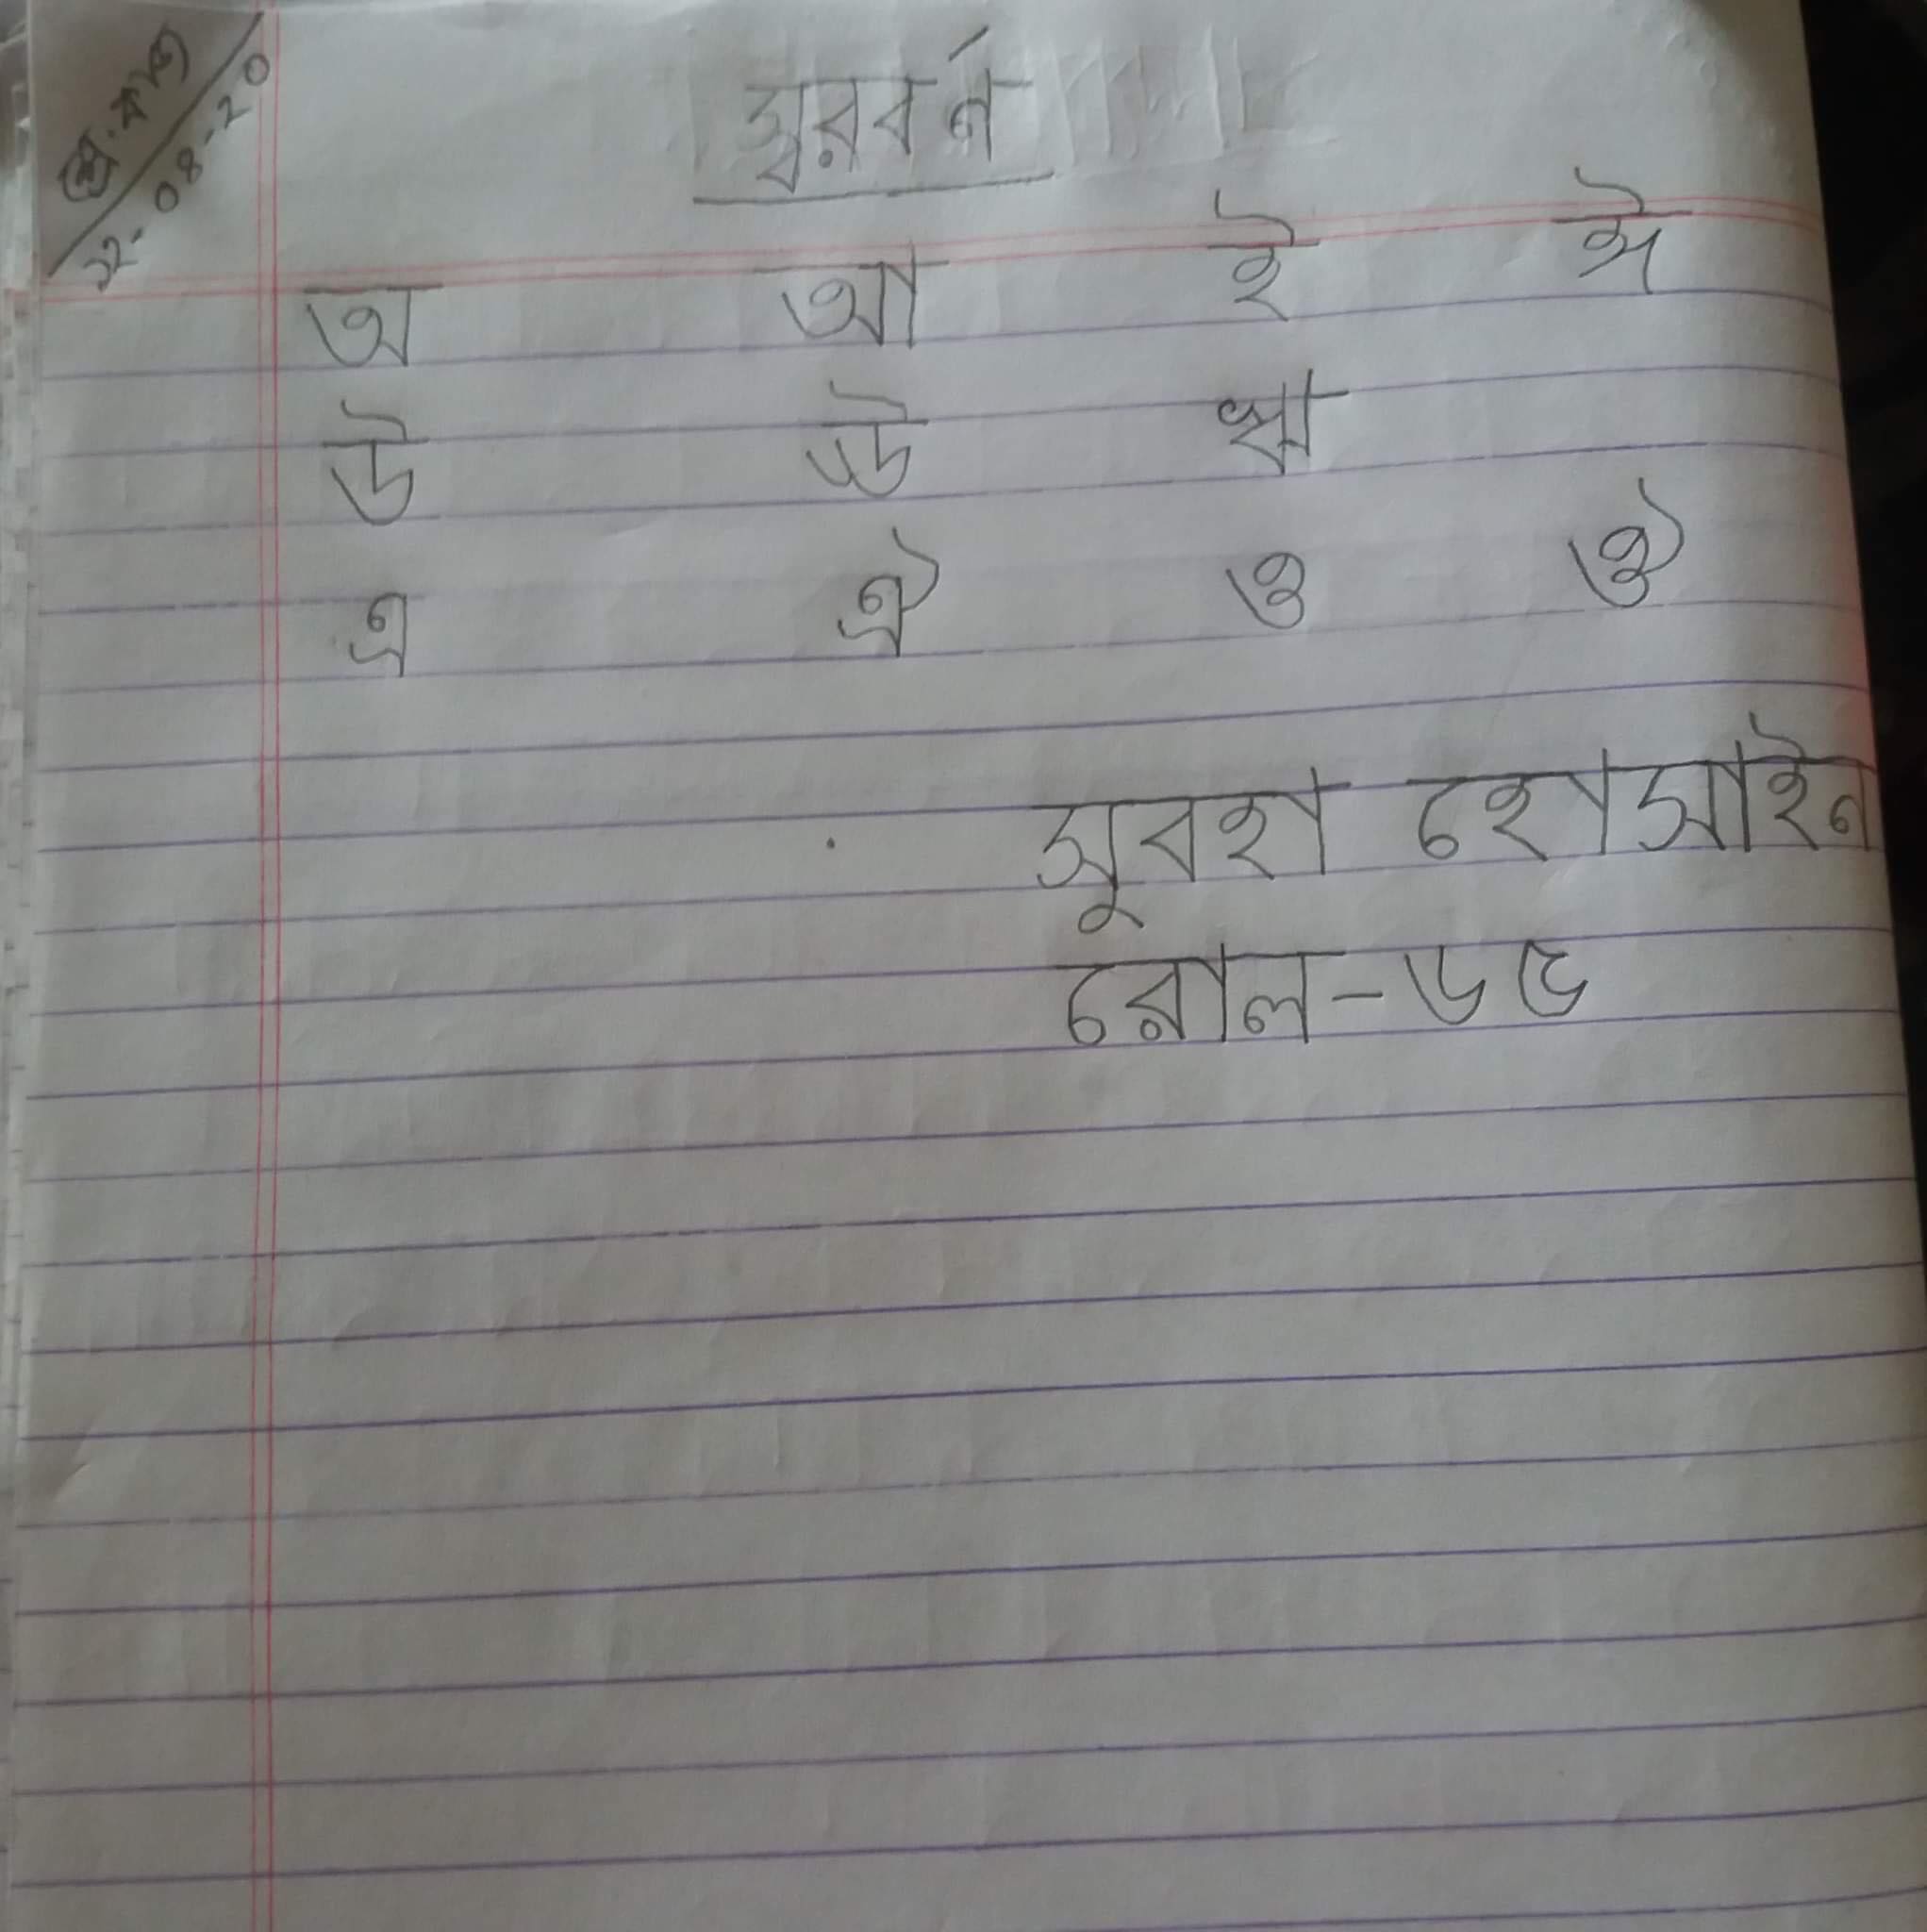 শ্রে.কাজ
১২-০৪-২০
স্বরবর্ন
অ আ ই ঈ
উ ঊ ঋ
এ ঐ ও ঔ
সুবহা হোসাইন
রোল-৬৫